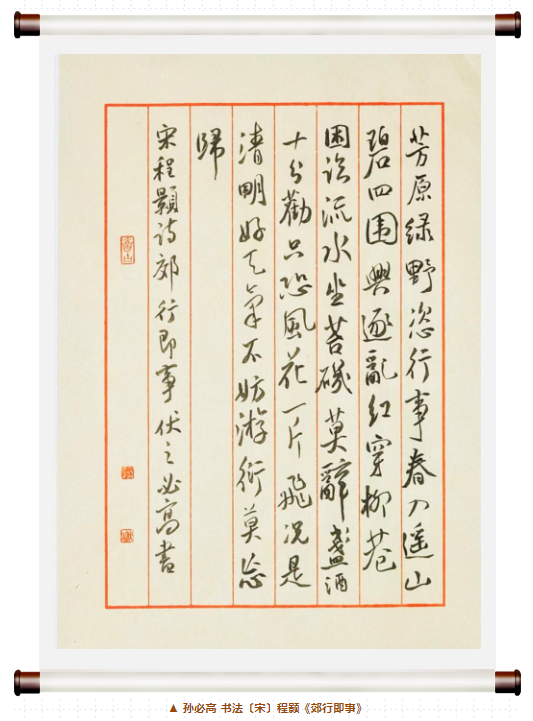 芳原绿野恣行事春入遥山
碧四围興逐亂红穿柳巷
困临流水坐苔磯莫辭盞酒
十分勸只恐風花一片飛况是
清明好天氣不妨游衍莫忘
歸
宋程顥诗郊行即事伏之必高書
▲ 孙必高 书法〔宋〕程颢《郊行即事》